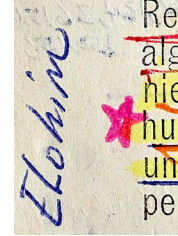 Elohim
Re
alg
nie
hu
un
pe